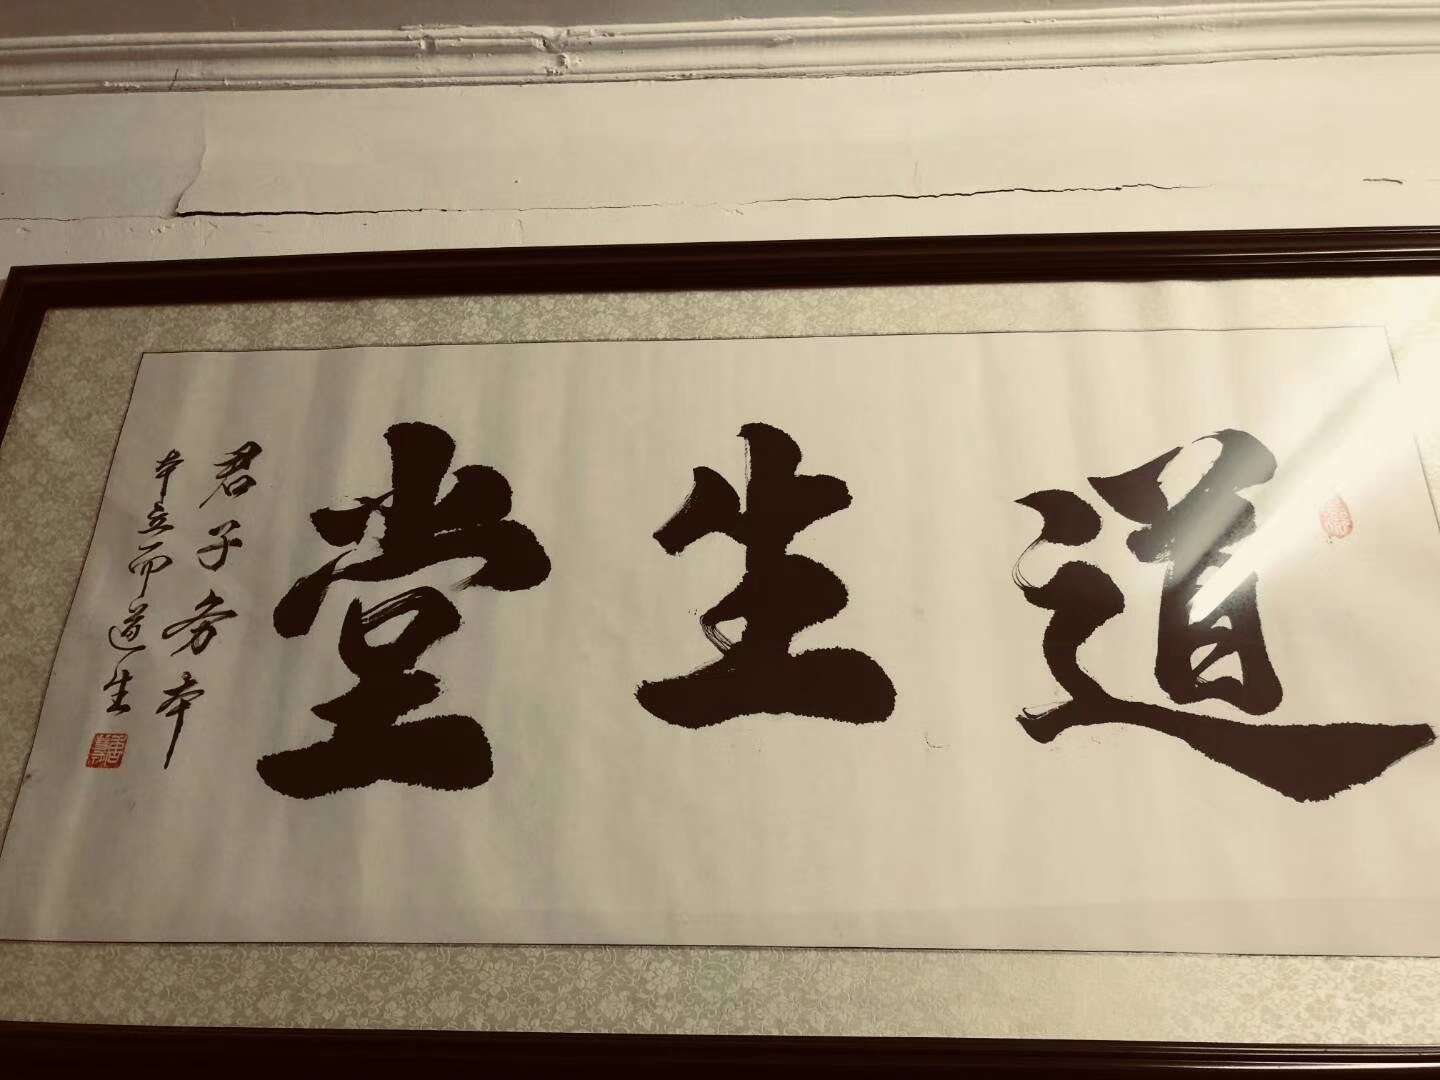 道生堂
君子务本
本立而道生